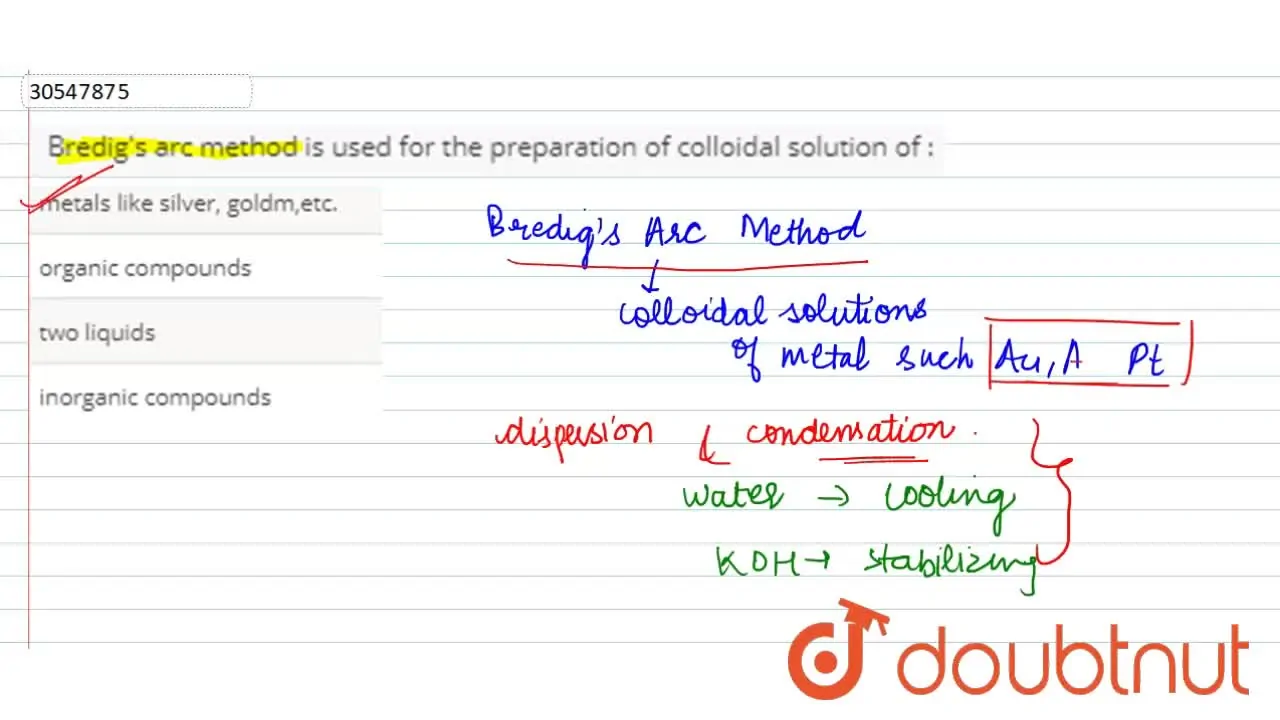 30547875
Bredig's arc method is used for the preparation of colloidal solution of :
metals like silver, goldm,etc.
organic compounds
two liquids
inorganic compounds
Bredig's Arc Method
colloidal solutions
of metal such Au, A Pt
dispersion & condensation.
water → cooling
KOH → stabilizing
doubtnut